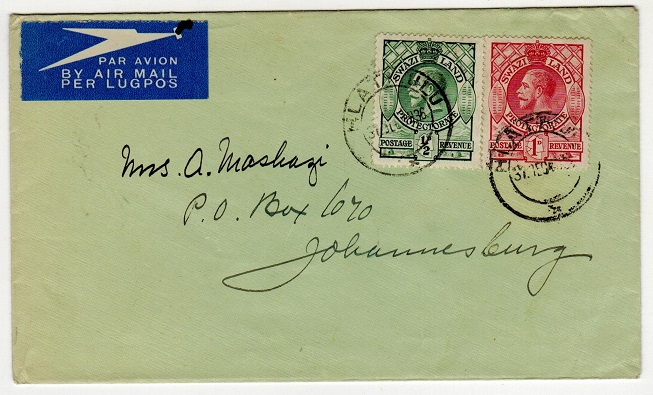 PAR AVION
BY AIR MAIL
PER LUGPOS
SWAZI LAND
PROTECTORATE
POSTAGE ½D REVENUE
SWAZI LAND
PROTECTORATE
POSTAGE 1D REVENUE
Mrs. A. Mashazi
P.O. Box 670
Johannesburg